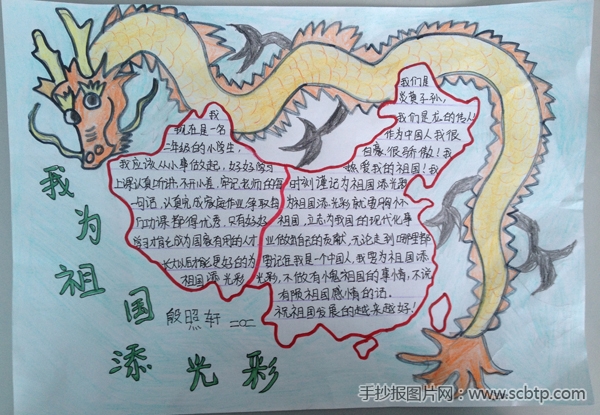 我为祖国添光彩
殷照轩 二(二)
我
现在是一名
二年级的小学生,
我应该从小事做起,好好学习
上课认真听讲,不开小差,牢记老师的每
一句话,认真完成家庭作业,争取每
门功课都得优秀,只有好好
学习才能长成为国家有用的人才
长大以后才能更好的为
祖国添光彩
我们是
炎黄子孙,
我们是龙的传人
作为中国人我很
自豪很骄傲!我
热爱我的祖国!我
时刻谨记为祖国添光彩
为祖国添光彩就要胸怀
祖国,立志为我国的现代化事
业做自己的贡献,无论走到哪里都
要记住我是一个中国人,我要为祖国添
光彩,不做有愧祖国的事情,不说
有损祖国感情的话。
祝祖国发展的越来越好!
手抄报图片网:www.scbtp.com